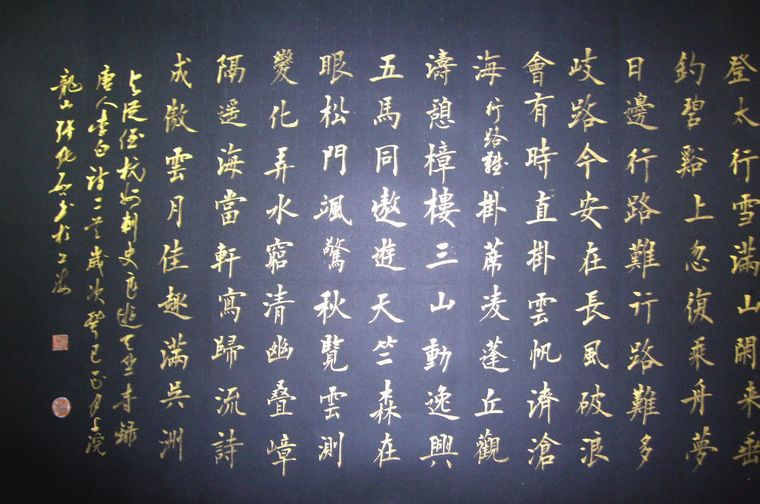 登太行雪滿山閑来垂
釣碧谿上忽復乘舟夢
日邊行路難行路難多
岐路今安在長風破浪
會有時直掛雲帆濟滄
海行路難掛席凌蓬丘觀
濤憩樟樓三山動逸興
五馬同遨遊天竺森在
眼松門颯驚秋覽雲測
變化弄水窮清幽叠嶂
隔遥海當軒寫歸流詩
成傲雲月佳趣滿吳洲
与從侄杭州刺史良遊天竺寺録
唐人李白詩二首歲次癸巳正月上浣
龍山書於上海